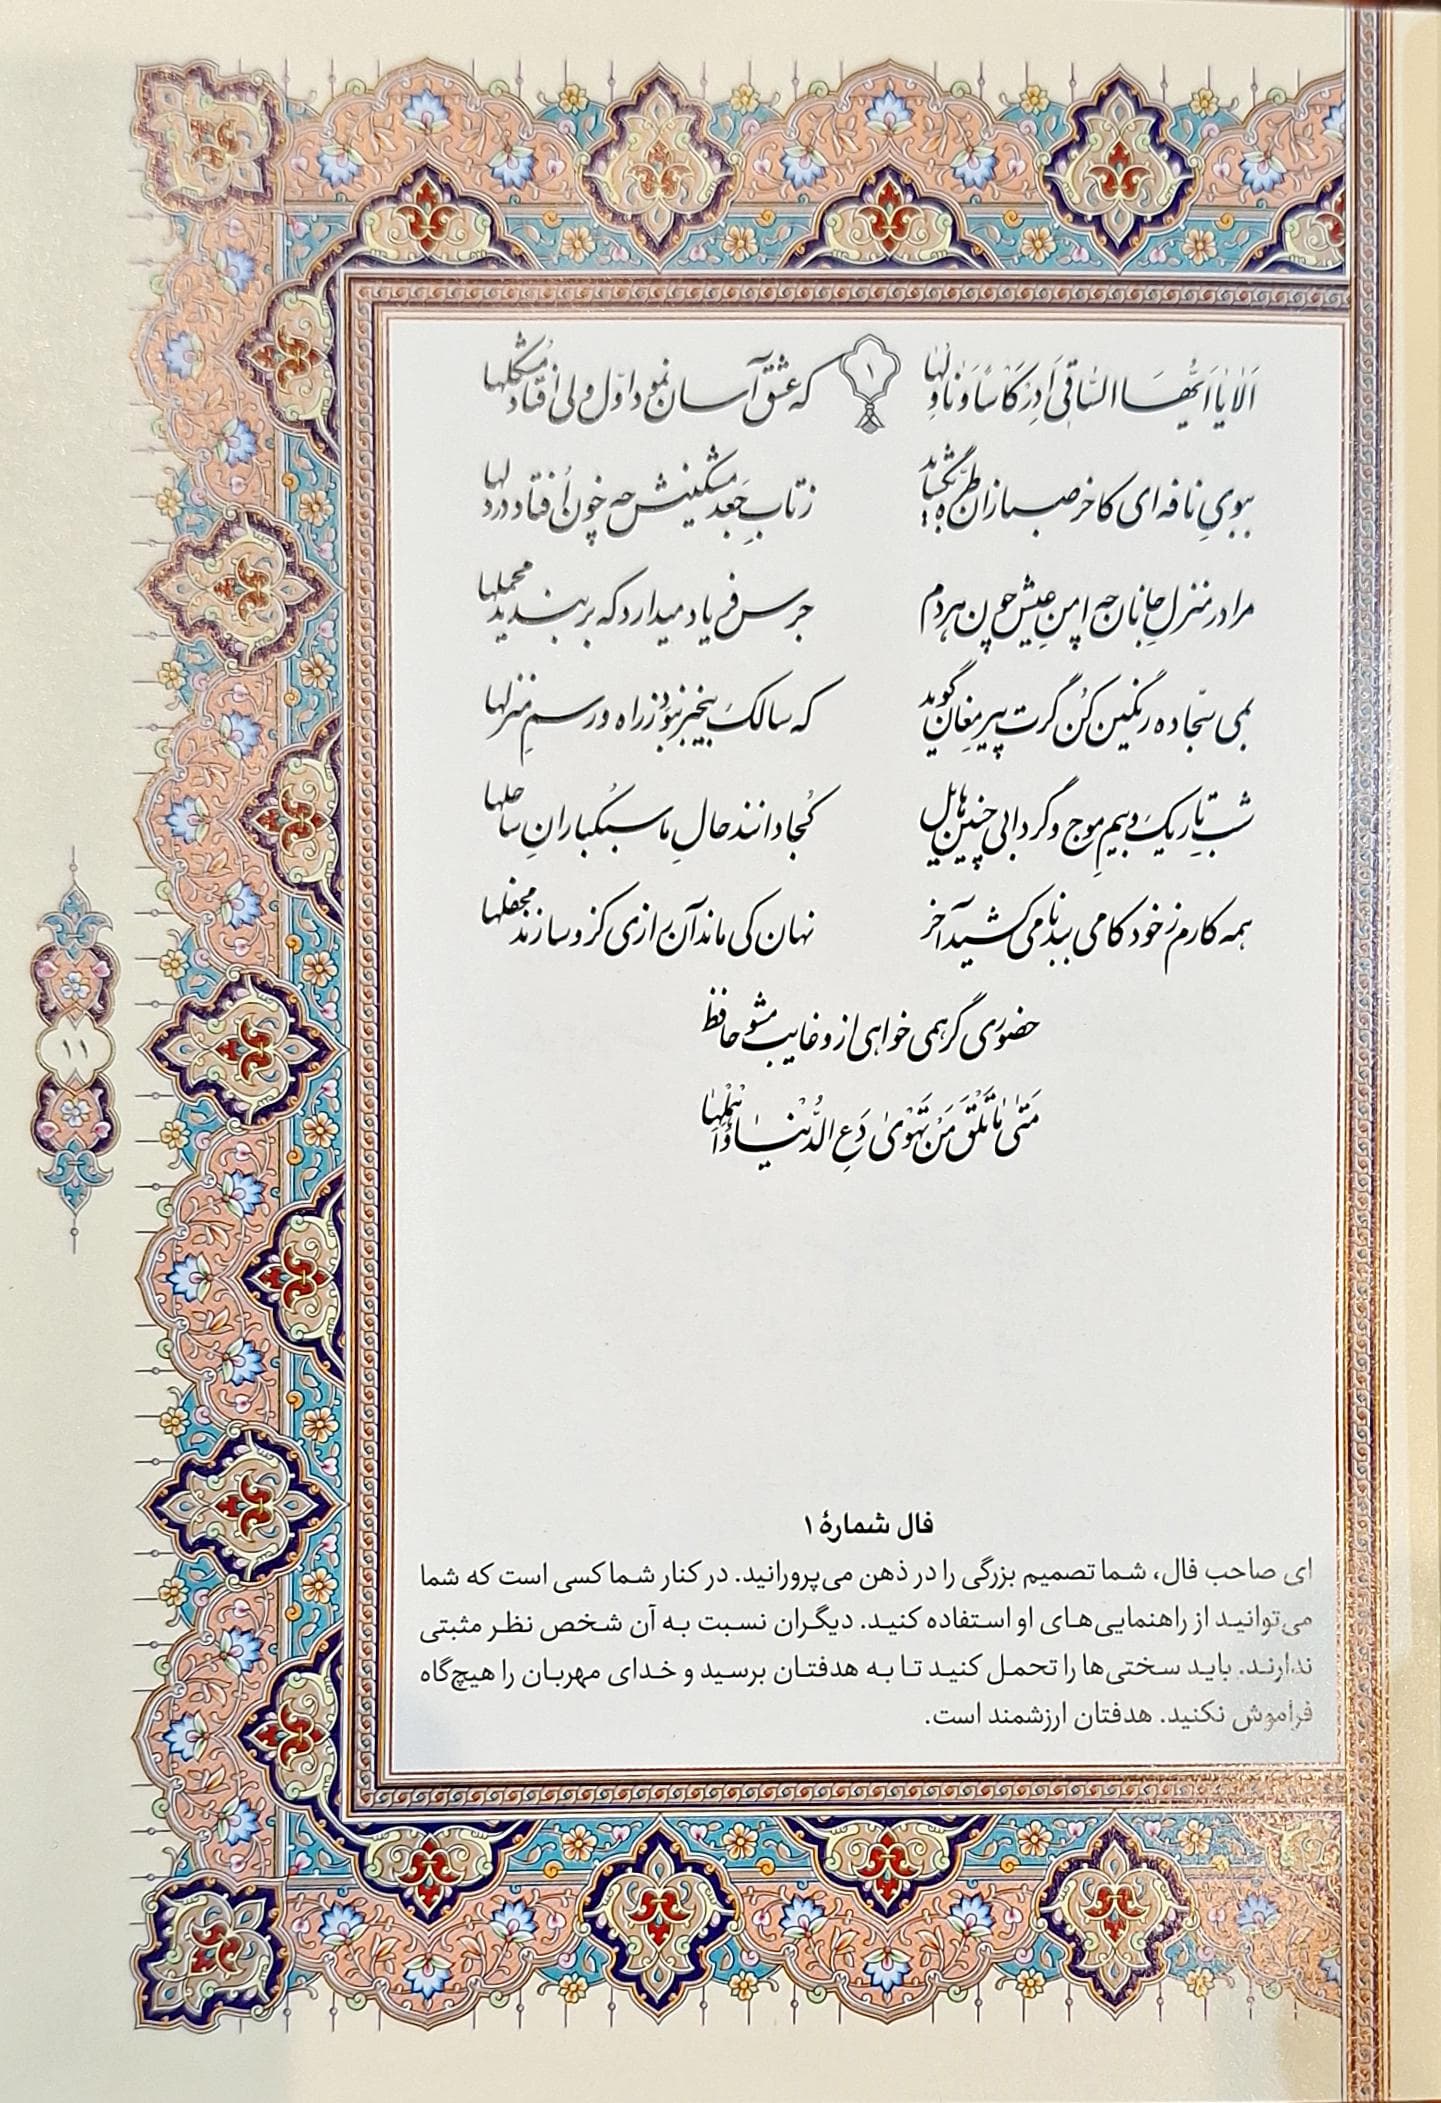 اَلا یا اَیُّهَا السّاقی اَدِرْ کَأسًا وَ ناوِلْها
۱
که عشق آسان نمود اوّل ولی افتاد مُشکلها
ببویِ نافه‌ای کاخر صبا زان طرّه بگشاید
ز تابِ جَعدِ مشکینش چه خون اُفتاد در دلها
مرا در منزلِ جانان چه امنِ عیش چون هر دم
جرس فریاد میدارد که بربندید محملها
بمی سجّاده رنگین کُن گرت پیرِ مغان گوید
که سالک بیخبر نبوَد ز راه و رسمِ منزلها
شبِ تاریک و بیمِ موج و گردابی چنین هایل
کُجا دانند حالِ ما سبُکبارانِ ساحلها
همه کارم ز خود کامی ببدنامی کشید آخر
نهان کی ماند آن رازی کزو سازند محفلها
حضوری گر همی خواهی ازو غایب مشو حافظ
مَتیٰ ما تَلْقَ مَنْ تَهْویٰ دَعِ الدُّنْیا وَ اَهْمِلْها
۱۱
فال شمارهٔ ۱
ای صاحب فال، شما تصمیم بزرگی را در ذهن می‌پرورانید. در کنار شما کسی است که شما
می‌توانید از راهنمایی‌های او استفاده کنید. دیگران نسبت به آن شخص نظر مثبتی
ندارند. باید سختی‌ها را تحمل کنید تا به هدفتان برسید و خدای مهربان را هیچ‌گاه
فراموش نکنید. هدفتان ارزشمند است.